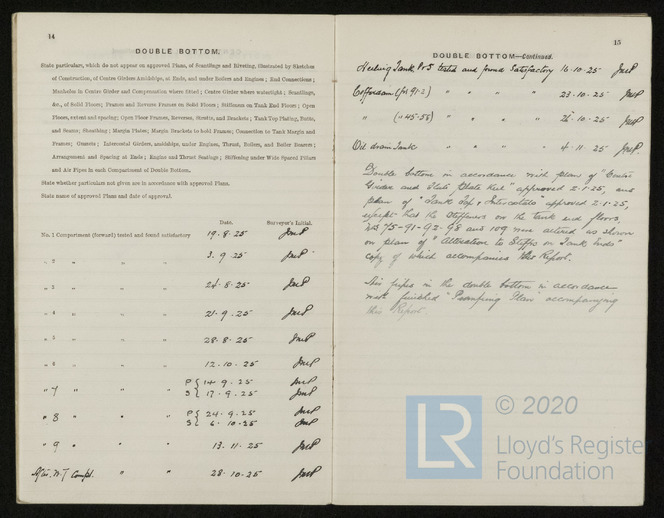 14
DOUBLE BOTTOM.
State particulars, which do not appear on approved Plans, of Scantlings and Riveting, illustrated by Sketches
of Construction, of Centre Girders Amidships, at Ends, and under Boilers and Engines; End Connections;
Manholes in Centre Girder and Compensation where fitted; Centre Girder where watertight; Scantlings,
&c., of Solid Floors; Frames and Reverse Frames on Solid Floors; Stiffeners on Tank End Floors; Open
Floors, extent and spacing; Open Floor Frames, Reverses, Struts, and Brackets; Tank Top Plating, Butts,
and Seams; Sheathing; Margin Plates; Margin Brackets to hold Frames; Connection to Tank Margin and
Frames; Gussets; Intercostal Girders, amidships, under Engines, Thrust, Boilers, and Boiler Bearers;
Arrangement and Spacing at Ends; Engine and Thrust Seatings; Stiffening under Wide Spaced Pillars
and Air Pipes in each Compartment of Double Bottom.
State whether particulars not given are in accordance with approved Plans.
State name of approved Plans and date of approval.
Date. Surveyor's Initial.
No. 1 Compartment (forward) tested and found satisfactory 19.8.25 JmP
„ 2 „ „ „ 3.9.25 JmP
„ 3 „ „ „ 24.8.25 JmP
„ 4 „ „ „ 21.9.25 JmP
„ 5 „ „ „ 28.8.25 JmP
„ 6 „ „ „ 12.10.25 JmP
„ 7 „ „ „ P { 14.9.25 JmP
S { 17.9.25 JmP
„ 8 „ „ „ P { 24.9.25 JmP
S { 6.10.25 JmP
„ 9 „ „ „ 13.11.25 JmP
W.T Compt. „ „ 28.10.25 JmP
15
DOUBLE BOTTOM—Continued.
Heeling Tank. P & S tested and found Satisfactory 16.10.25 JmP
Cofferdam (frs 91-2) „ „ „ „ 23.10.25 JmP
„ („ 45-55) „ „ „ „ 26.10.25 JmP
Oil drain Tank „ „ „ „ 4.11.25 JmP
Double bottom in accordance with plans of "Centre
Girder and Flat Plate Keel" approved 2.1.25, and
plan of "Tank Top & Intercostals" approved 2.1.25,
except that the Stiffeners on the tank end floors,
Nos 75-91-92-98 and 109 were altered as shown
on plan of "Alteration to Stiffs on Tank Ends"
copy of which accompanies this Report.
Air pipes in the double bottom in accordance
with finished "Pumping Plan" accompanying
this Report.
LR © 2020
Lloyd's Register
Foundation